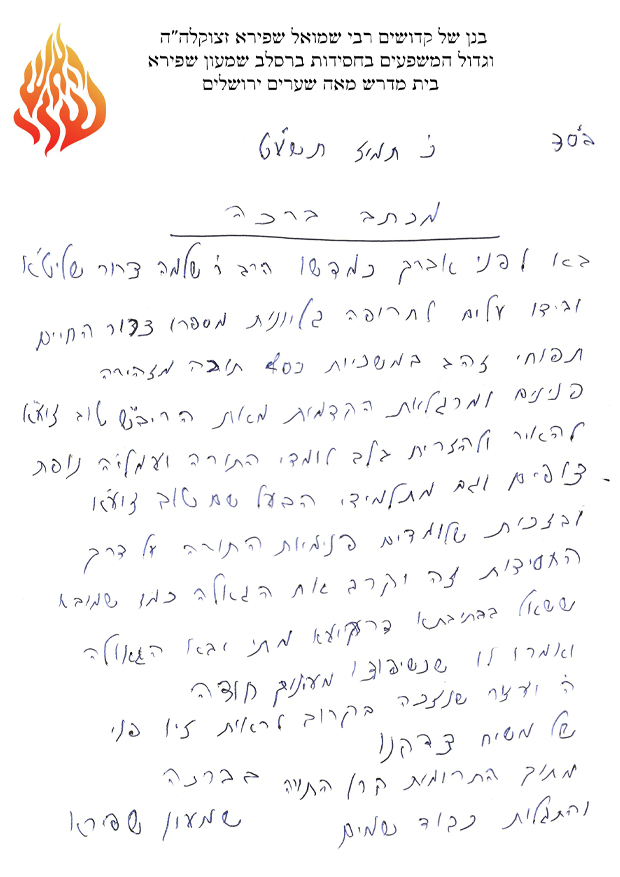 בנן של קדושים רבי שמואל שפירא זצוקלה"ה
וגדול המשפעים בחסידות ברסלב שמעון שפירא
בית מדרש מאה שערים ירושלים
בס"ד
כ' תמיז תשע"ט
מכתב ברכה
בא לפני אברך כמדשו הרב ר' שלמה דרור שליט"א
ובידו עלים לתרופה גליונות מספרו צרור החיים
תפוחי זהב במשכיות כסף תורה מזהירה
פנינים ומרגלאת הקדמית מאת הריב"ש טוב זיע"א
להאיר ולהזריח בלב לומדי התורה ועמליה נופת
צופים וגם מתלמידי הבעל שם טוב זיע"א
ובזכית שלומדים פנימיות התורה על דרך
החסידות זה יקרב את הגאלה כמו שמובא
ששאל בבתיבתא דרקיעא מתי יבא הגאולה
ואמרו לו שכשיפוצו מעינתך חוצה
ה' יעזר שנזכה בקרוב לראית זיו פני
של משיח צדקנו
מתוך התרוממות קרן התורה בברכה
והתגלות כבוד שמים שמעון שפירא